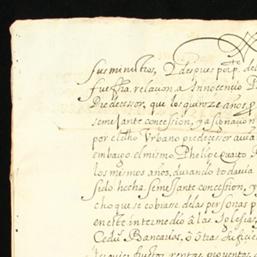 sus ministros, Y despues por pte. del
fuesfha. relacion a Innocencio P
Predecessor, que los quinze años, p
semejante concession, ya signavion
por el dho Vrbano predecessor aui
embargo el mismo Phelipe quarto R
los mismos años, durando todavia
sido hecha semejante concession, y
cho que se cobrase de las personas p
en este intermedio â las Iglesias,
Cedu Bancarios, ô otras suficien